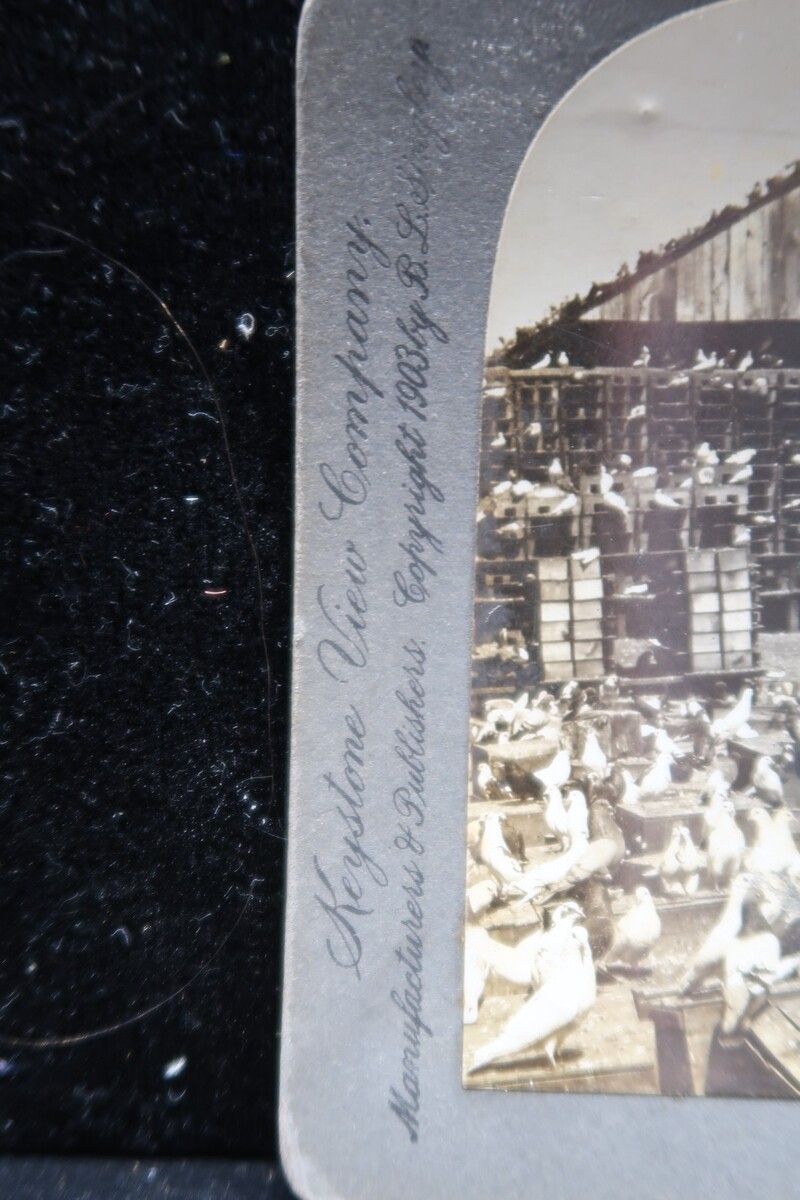 Keystone View Company.
Manufacturers & Publishers. Copyright 1903 by B. L. Singley